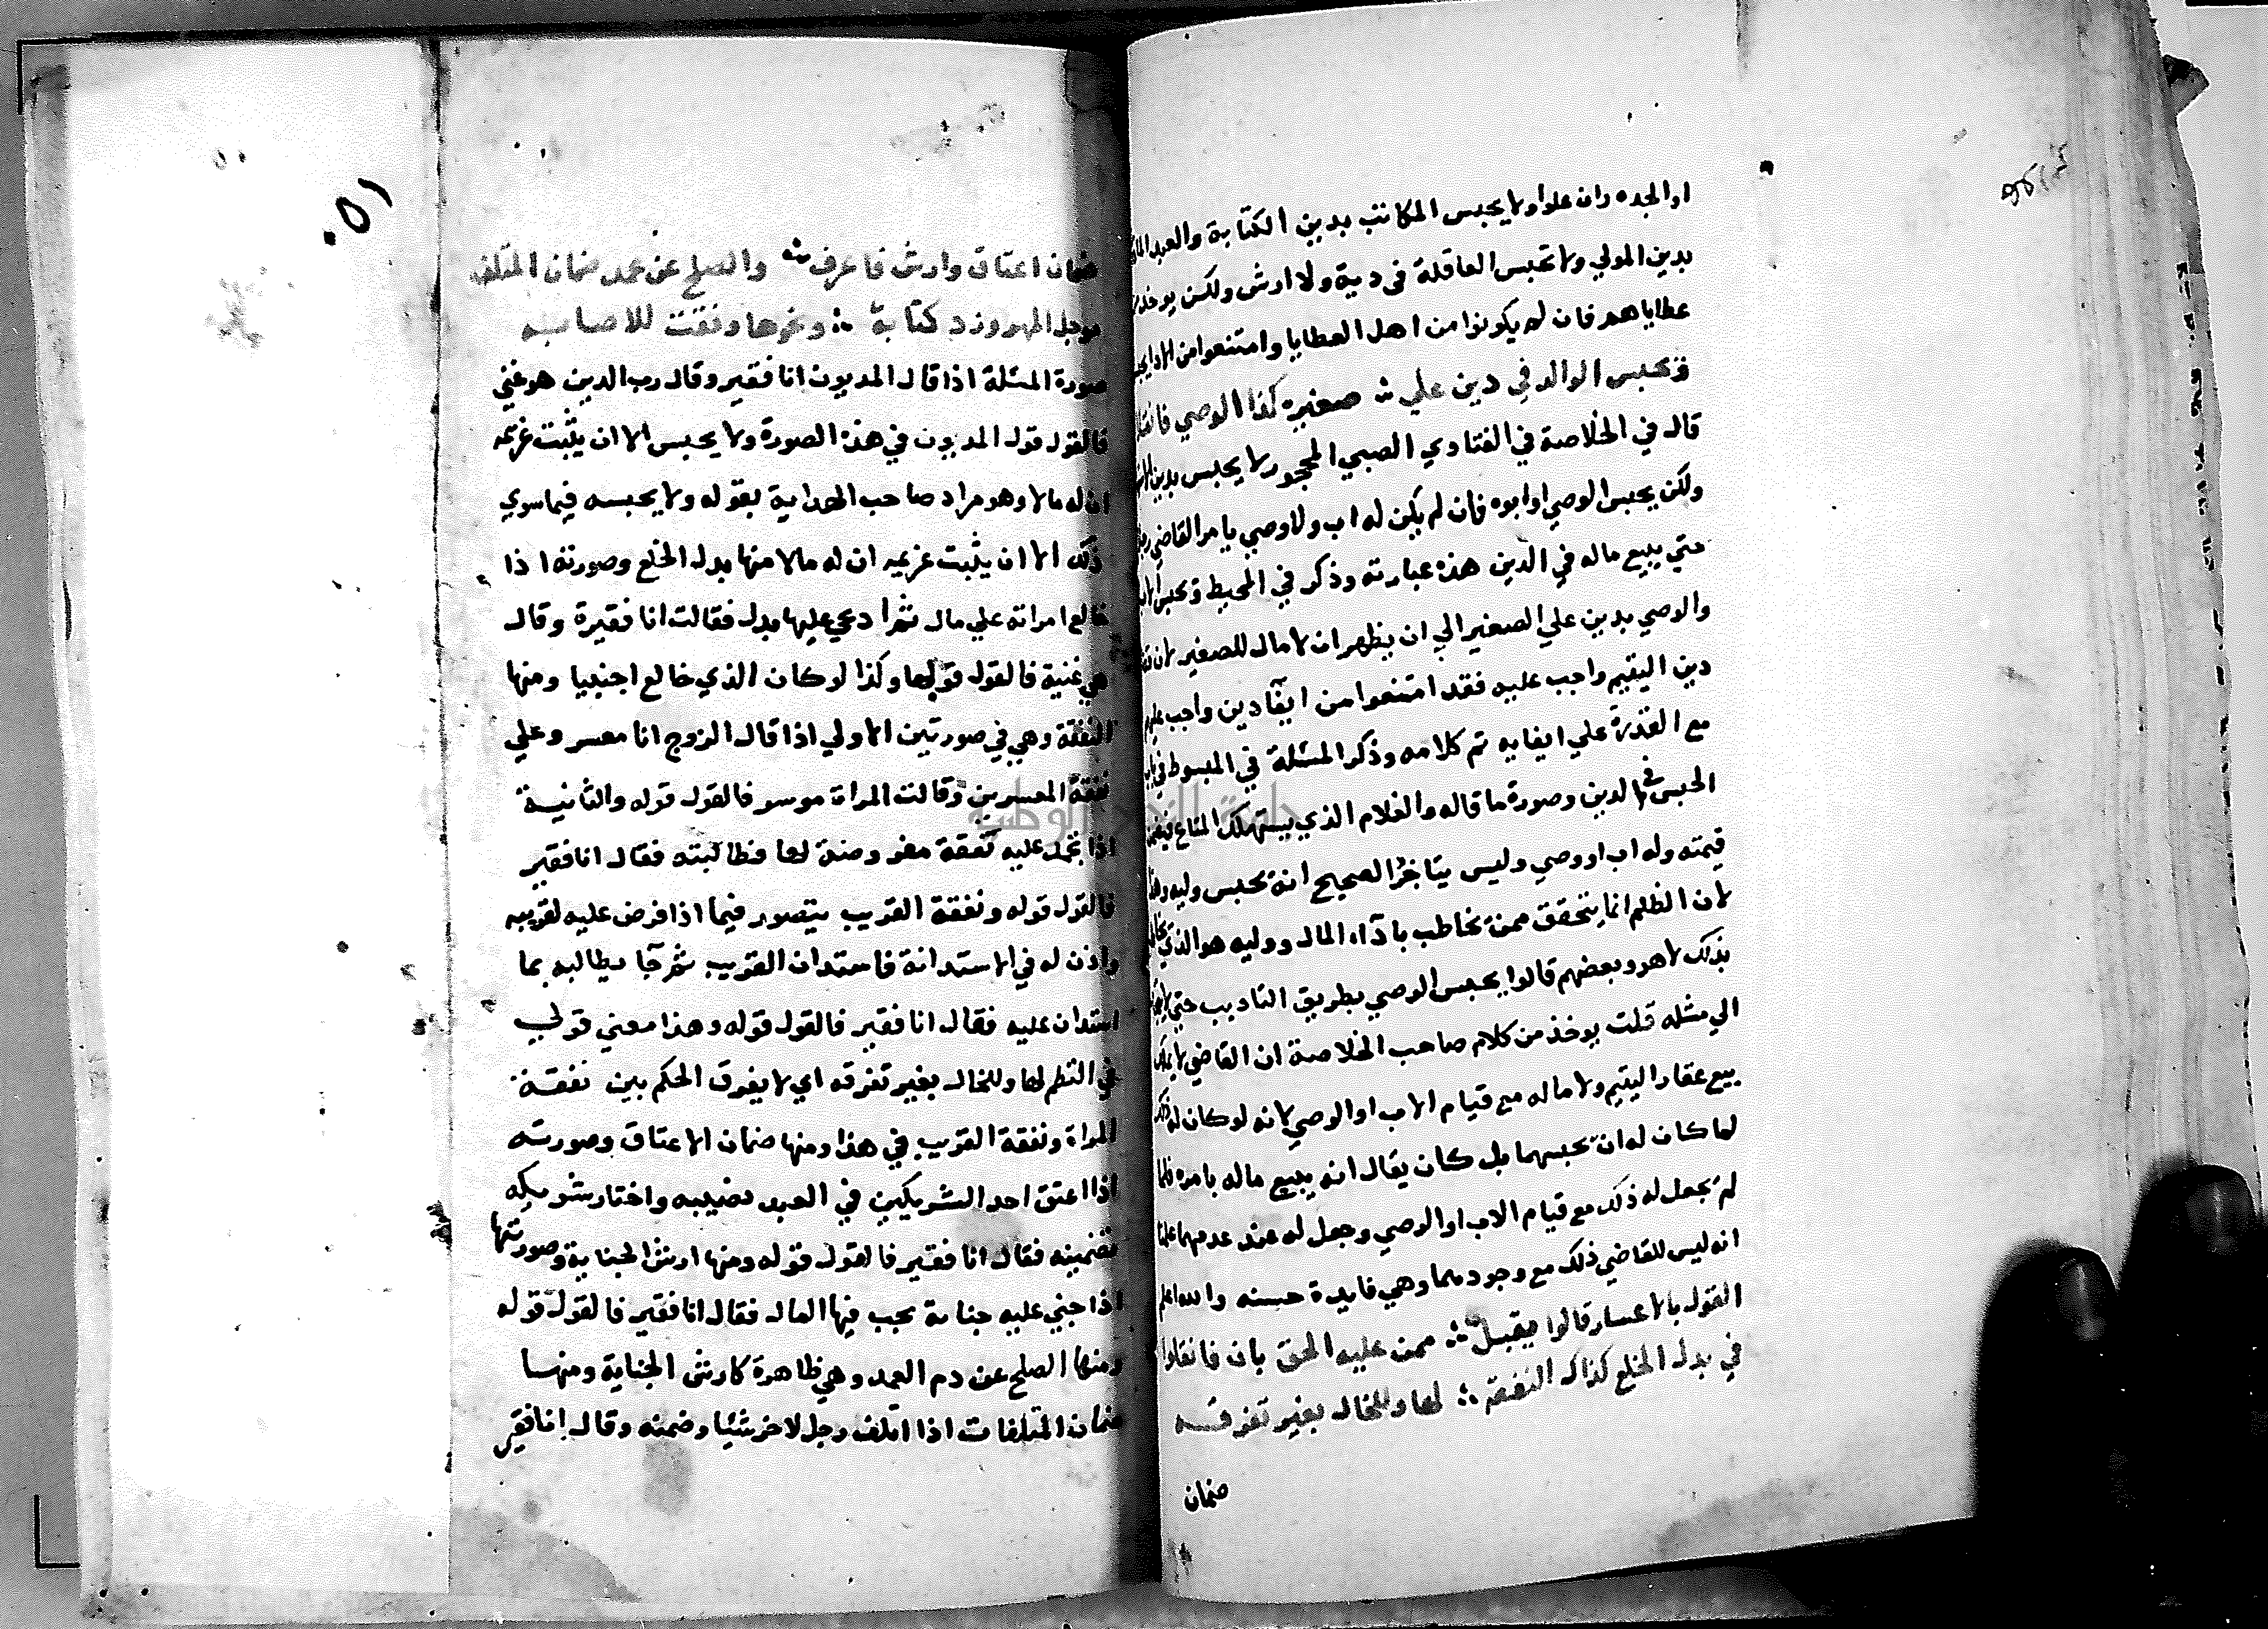 او الجده وان علوا ولا يحبس المكاتب بدين الكتابة والعبد
بدين المولي ولا تحبس العاقلة في دية ولا ارش ولكن يوخذ
عطاياهم فان لم يكونوا من اهل العطايا وامتنعوا من الادا
وتحبس الوالد في دين علي ∴ صغيره كذا الوصي فانقلا
قال في الخلاصة في الفتاوي الصبي المحجور لا يحبس بدين
ولكن يحبس الوصي او ابوه فان لم يكن له اب ولا وصي يامر القاضي
حتي يبيع ماله في الدين هذه عبارته وذكر في المحيط وتحبس
والوصي بدين علي الصغير الي ان يظهر ان لا مال للصغير لان
دين اليتيم واجب عليه فقد امتنعوا من ايفآ دين واجب عليهم
مع القدرة علي ايفايه تم كلامه وذكر المسئلة في المبسوط في
الحبس في الدين وصورة ما قاله والغلام الذي يستهلك المتاع
قيمته وله اب او وصي وليس بتاجر الصحيح انه يحبس وليه
لان الظلم انما يتحقق ممن يخاطب باداء المال ووليه هو الذي
بذلك لا هو وبعضهم قالوا يحبس الوصي بطريق التاديب حتي
الي مثله قلت يوخذ من كلام صاحب الخلاصة ان القاضي لا يملك
بيع عقار اليتيم ولا ماله مع قيام الاب او الوصي لانه لو كان له ذلك
لما كان له ان يحبسهما بل كان يقال انه يبيع ماله بامره فلما
لم يجعل له ذلك مع قيام الاب او الوصي وجعل له عند عدمهما علمنا
انه ليس للقاضي ذلك مع وجودهما وهي فايدة حسنه والله اعلم
القول بالاعسار قالوا يقبل ∴ ممن عليه الحق بان فانقلوا
في بدل الخلع كذاك النفقة ∴ لها وللخال بغير تفرقه
ضمان
١٥٠
ضمان اعتاق وارش فاعرف ∴ والصلح عن عمد ضمان المتلف
موجل المهر وزد كتابة ∴ ونحوها
صورة المسئلة اذا قال المديون انا فقير وقال رب الدين هو غني
فالقول قول المديون في هذه الصورة ولا يحبس الا ان يثبت غريمه
ان له مالا وهو مراد صاحب الهداية بقوله ولا يحبسه فيما سوي
ذلك الا ان يثبت غريمه ان له مالا منها بدل الخلع وصورته اذا
خالع امراته علي مال ثم ادعي عليها بدل فقالت انا فقيرة وقال
هي غنية فالقول قولها وكذا لو كان الذي خالع اجنبيا ومنها
النفقة وهي في صورتين الاولي اذا قال الزوج انا معسر وعلي
نفقة المعسرين وقالت المراة موسر فالقول قوله والثانية
اذا تجمد عليه نفقة مفروضة لها فطالبته فقال انا فقير
فالقول قوله ونفقة القريب يتصور فيما اذا فرض عليه لقريبه
واذن له في الاستدانة فاستدان القريب ثم جآ يطالبه بما
استدان عليه فقال انا فقير فالقول قوله وهذا معني قولي
في النظم لها وللخال بغير تفرقه اي لا يفرق الحكم بين نفقة
المراة ونفقة القريب في هذا ومنها ضمان الاعتاق وصورته
اذا اعتق احد الشريكين في العبد نصيبه واختار شريكه
تضمينه فقال انا فقير فالقول قوله ومنها ارش الجناية وصورتها
اذا جني عليه جناية يجب فيها المال فقال انا فقير فالقول قوله
ومنها الصلح عن دم العمد وهي ظاهرة كارش الجناية ومنها
ضمان المتلفات اذا اتلف رجل لاخر شئيا وضمنه وقال انا فقير